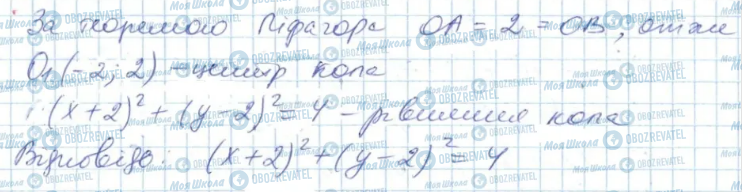 За теоремою Піфагора OA = 2 = OB, отже
O₁(-2; 2) - центр кола
(x+2)² + (y-2)² = 4 - рівняння кола
Відповідь: (x+2)² + (y-2)² = 4